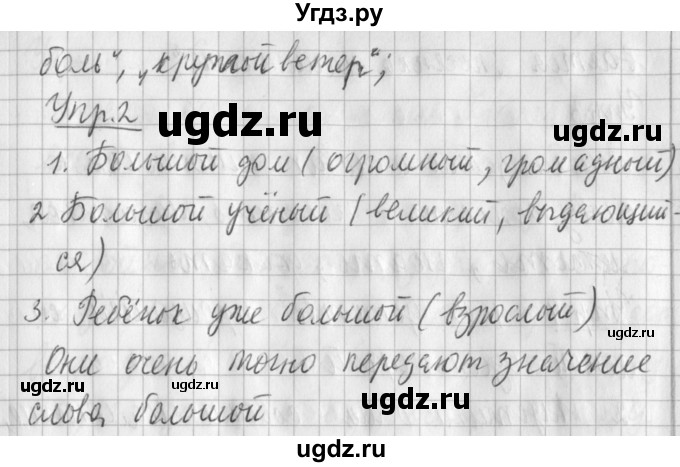 Угдз.ру
боль", „круглый ветер";
Упр.2
ugdz.ru
ugdz.ru
1. Большой дом (огромный, громадный)
ugdz.ru
2 Большой учёный (великий, выдающий-
ся)
ugdz.ru
ugdz.ru
3. Ребёнок уже большой (взрослый)
Они очень точно передают значение
ugdz.ru
ugdz.ru
ugdz.ru
слова большой
ugdz.ru